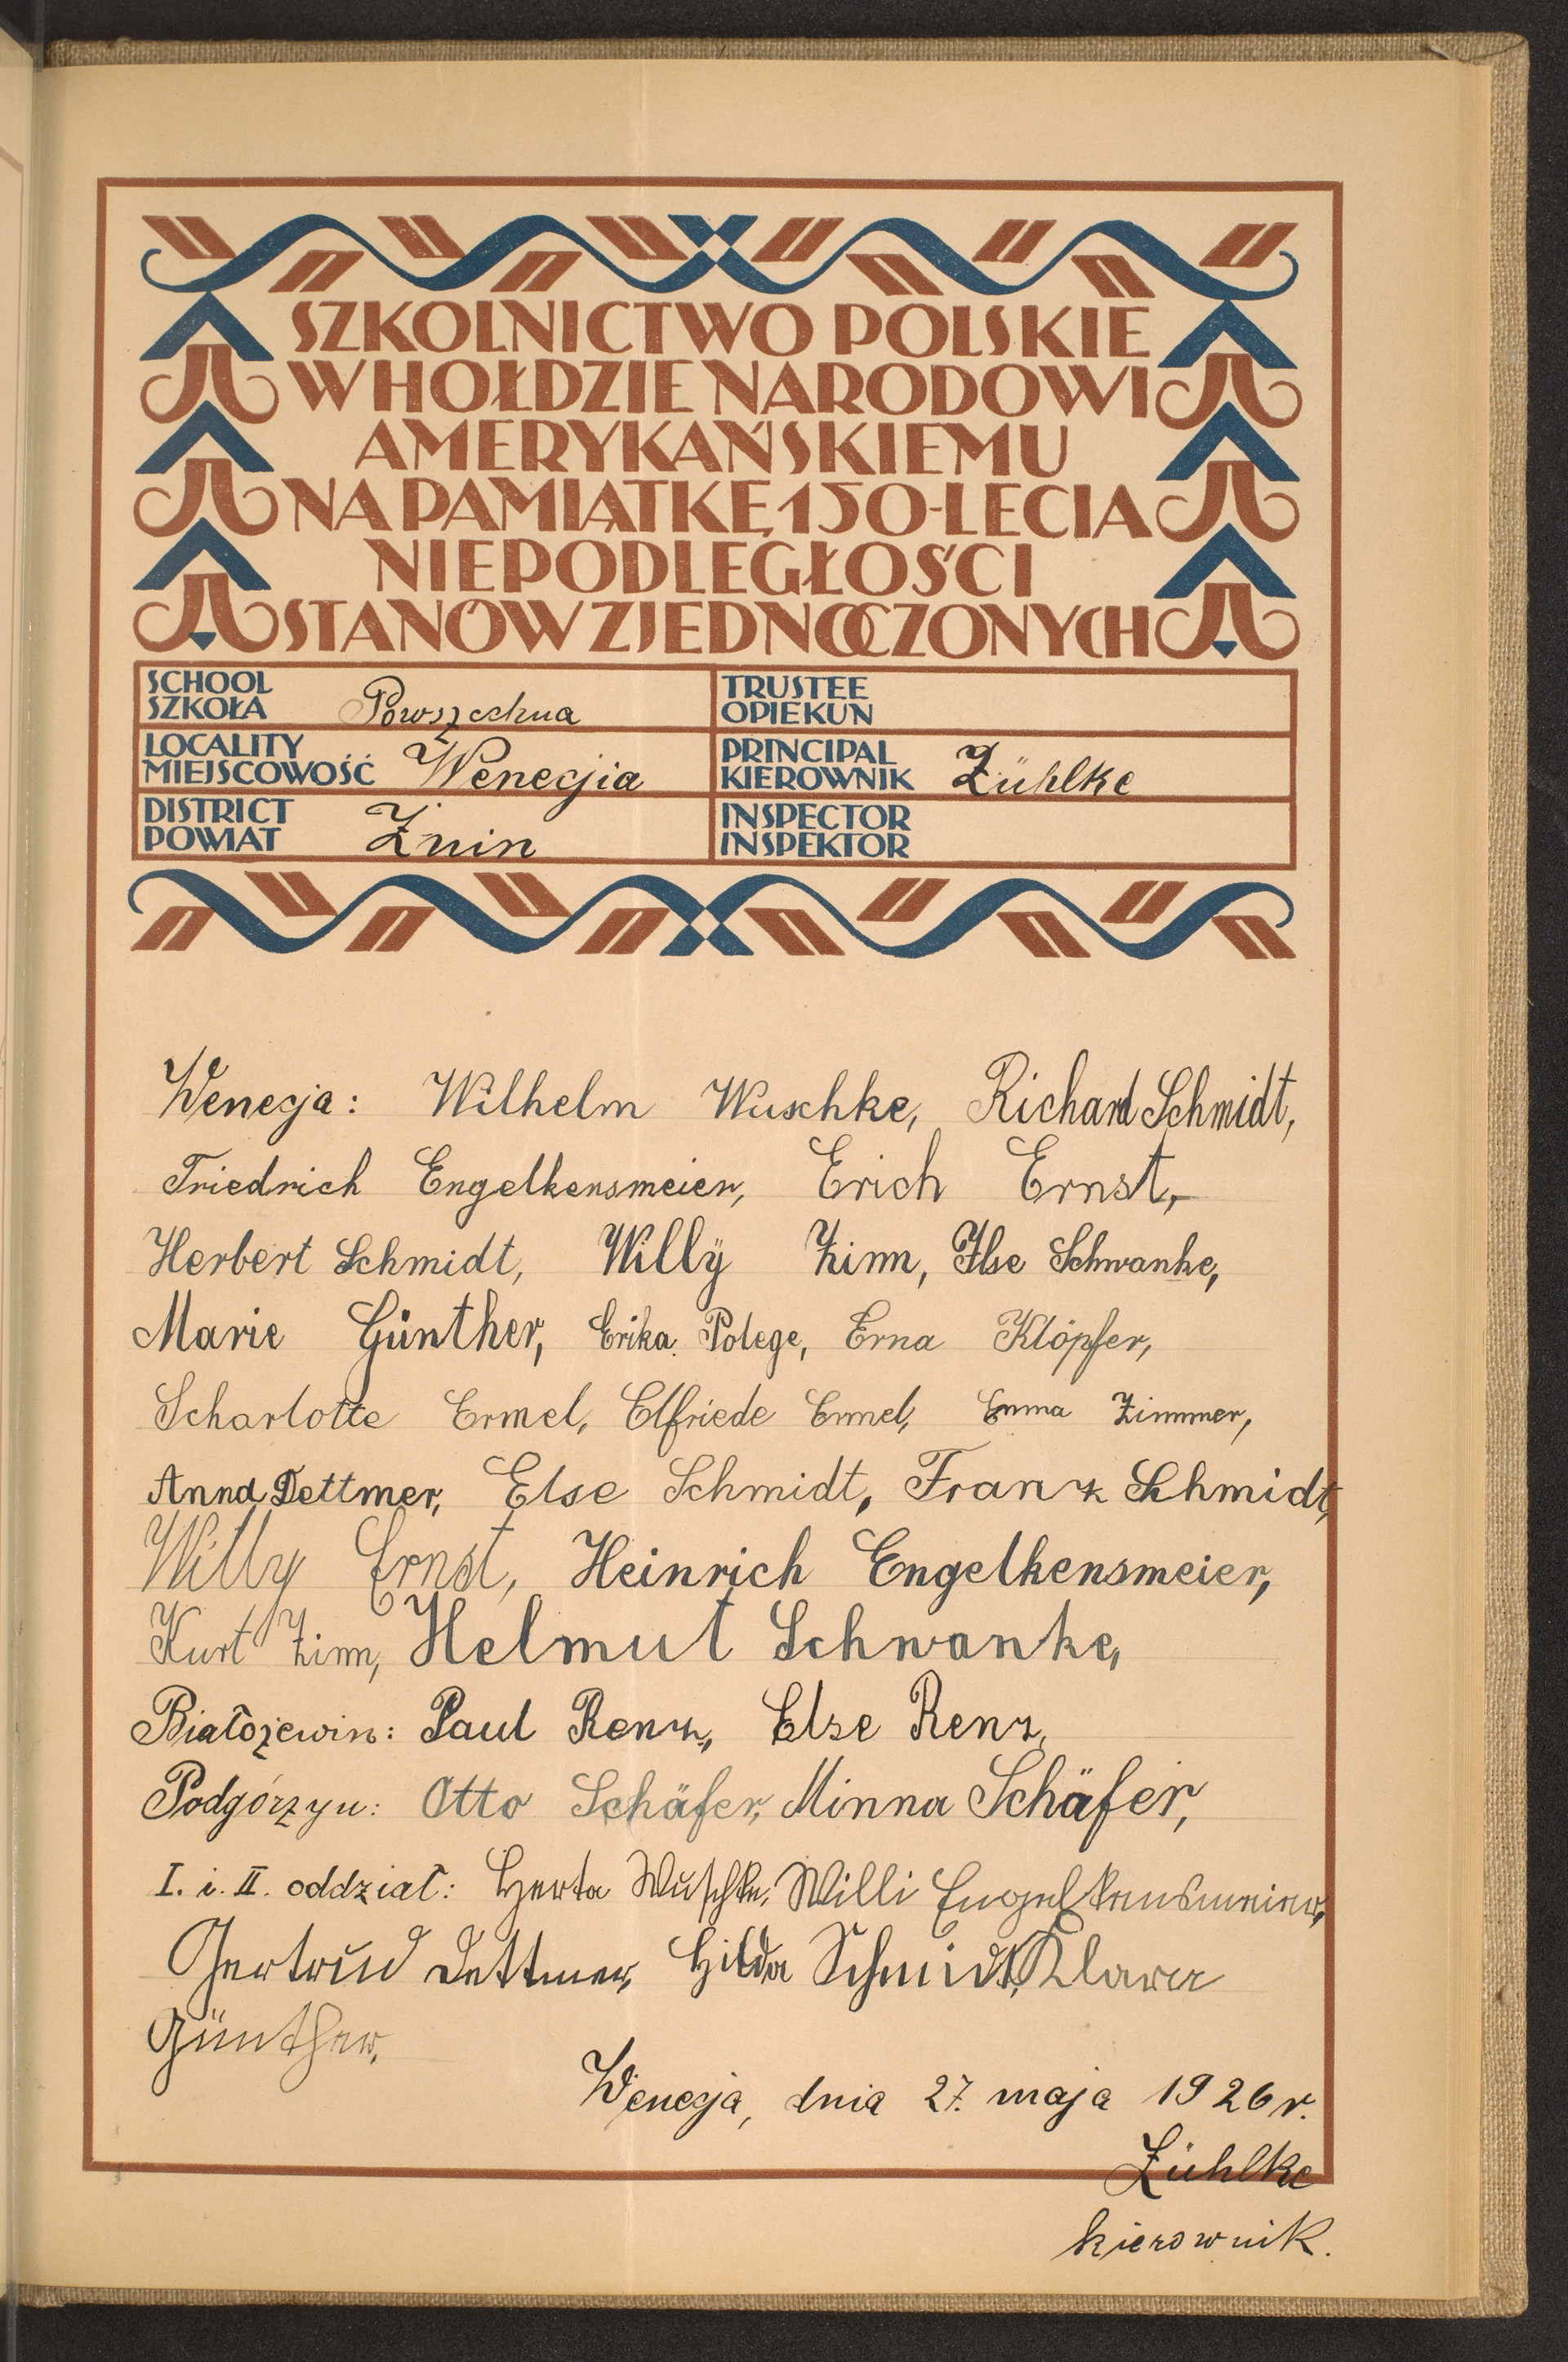 SZKOLNICTWO POLSKIE
W HOŁDZIE NARODOWI
AMERYKAŃSKIEMU
NA PAMIĄTKĘ 150-LECIA
NIEPODLEGŁOŚCI
STANÓW ZJEDNOCZONYCH
SCHOOL
SZKOŁA Powszechna
TRUSTEE
OPIEKUN
LOCALITY
MIEJSCOWOŚĆ Wenecjia
PRINCIPAL
KIEROWNIK Zühlke
DISTRICT
POWIAT Żnin
INSPECTOR
INSPEKTOR
Wenecja: Wilhelm Wuschke, Richard Schmidt,
Friedrich Engelkensmeier, Erich Ernst,
Herbert Schmidt, Willÿ Zinn, Ilse Schwanke,
Marie Günther, Erika Polege, Erna Klöpfer,
Scharlotte Ermel, Elfriede Ermel, Emma Zimmer,
Anna Dettmer, Else Schmidt, Franz Schmidt,
Willy Ernst, Heinrich Engelkensmeier,
Kurt Zinn, Helmut Schwanke,
Białożewin: Paul Renz, Else Renz,
Podgórzyn: Otto Schäfer, Minna Schäfer,
I. i. II. oddział: Herta Wuschke, Willi Engelkensmeier,
Gertrud Dettmer, Hilda Schmidt, Klara
Günther.
Wenecja, dnia 27. maja 1926 r.
Zühlke
kierownik.